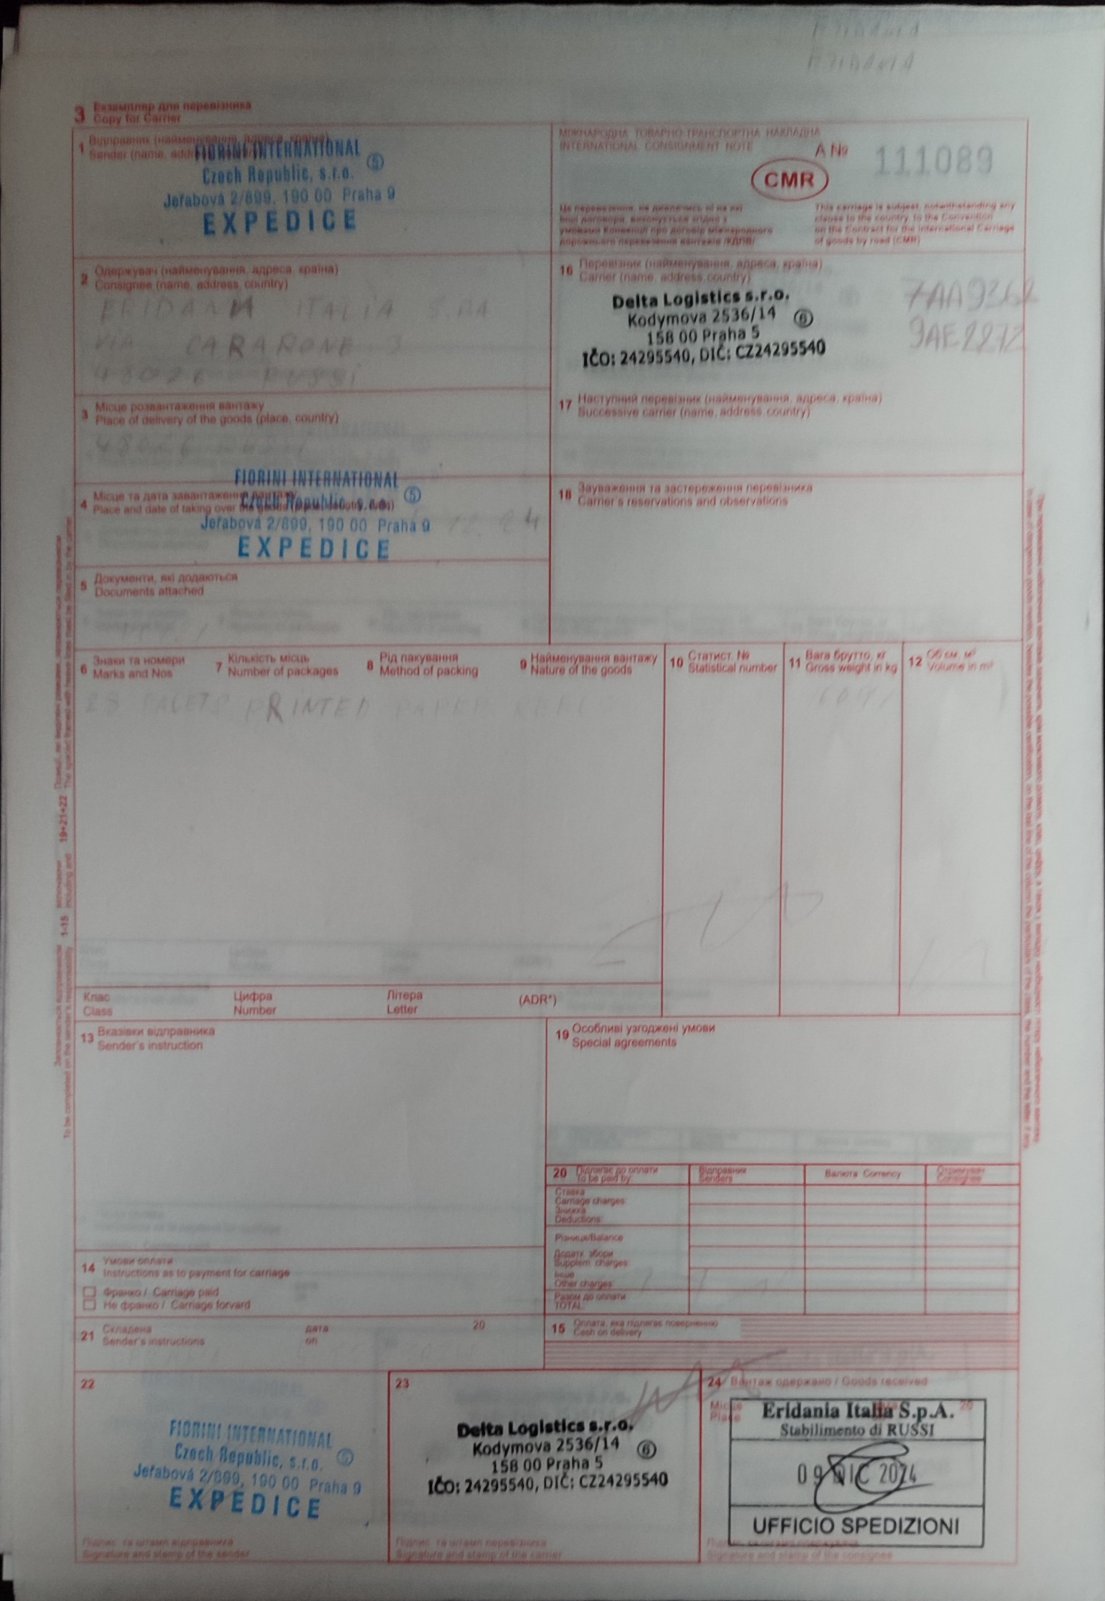 ERIDANIA
ERIDANIA
3 Екземпляр для перевізника
Copy for Carrier
1 Відправник (найменування, адреса, країна)
Sender (name, address
FIORINI INTERNATIONAL
Czech Republic, s.r.o. 5
Jeřabová 2/899, 190 00 Praha 9
EXPEDICE
МІЖНАРОДНА ТОВАРНО-ТРАНСПОРТНА НАКЛАДНА
INTERNATIONAL CONSIGNMENT NOTE
A № 111089
CMR
This carriage is subject, notwithstanding any
clause to the country, to the Convention
on the Contract for the International Carriage
of goods by road (CMR)
2 Одержувач (найменування, адреса, країна)
Consignee (name, address, country)
ERIDANIA ITALIA S.PA
VIA CARARONE 3
48026 RUSSI
16 Перевізник (найменування, адреса, країна)
Carrier (name, address,country)
Delta Logistics s.r.o.
Kodymova 2536/14 6
158 00 Praha 5
IČO: 24295540, DIČ: CZ24295540
7AA9362
9AE2272
3 Місце розвантаження вантажу
Place of delivery of the goods (place, country)
48026
17 Наступний перевізник (найменування, адреса, країна)
Successive carrier (name, address,country)
4 Місце та дата завантаження вантажу
Place and date of taking over the goods
FIORINI INTERNATIONAL
Czech Republic, s.r.o. 5
Jeřabová 2/899, 190 00 Praha 9
EXPEDICE
12.24
18 Зауваження та застереження перевізника
Carrier's reservations and observations
5 Документи, які додаються
Documents attached
6 Знаки та номери
Marks and Nos
7 Кількість місць
Number of packages
8 Рід пакування
Method of packing
9 Найменування вантажу
Nature of the goods
10 Статист. №
Statistical number
11 Вага брутто, кг
Gross weight in kg
12 Об'єм, м³
Volume in m³
PRINTED PAPER REEL
Клас
Class
Цифра
Number
Літера
Letter
(ADR*)
13 Вказівки відправника
Sender's instruction
19 Особливі узгоджені умови
Special agreements
20 Підлягає до оплати
To be paid by:
Відправник
Senders
Валюта Currency
Отримувач
Consignee
Ставка
Carriage charges
Знижка
Deductions
Різниця/Balance
Додатк. збори
Supplem. charges
Інше
Other charges
Разом до оплати
TOTAL:
14 Умови оплати
Instructions as to payment for carriage
Франко / Carriage paid
Не франко / Carriage forvard
21 Складена
Sender's instructions
дата
on
20
15 Оплата, яка підлягає поверненню
Cash on delivery
22
FIORINI INTERNATIONAL
Czech Republic, s.r.o. 5
Jeřabová 2/899, 190 00 Praha 9
EXPEDICE
Підпис та штамп відправника
Signature and stamp of the sender
23
Delta Logistics s.r.o.
Kodymova 2536/14 6
158 00 Praha 5
IČO: 24295540, DIČ: CZ24295540
Підпис та штамп перевізника
Signature and stamp of the carrier
24 Вантаж одержано / Goods received
Місце
Place
20
Eridania Italia S.p.A.
Stabilimento di RUSSI
09 DIC 2024
UFFICIO SPEDIZIONI
Signature and stamp of the consignee